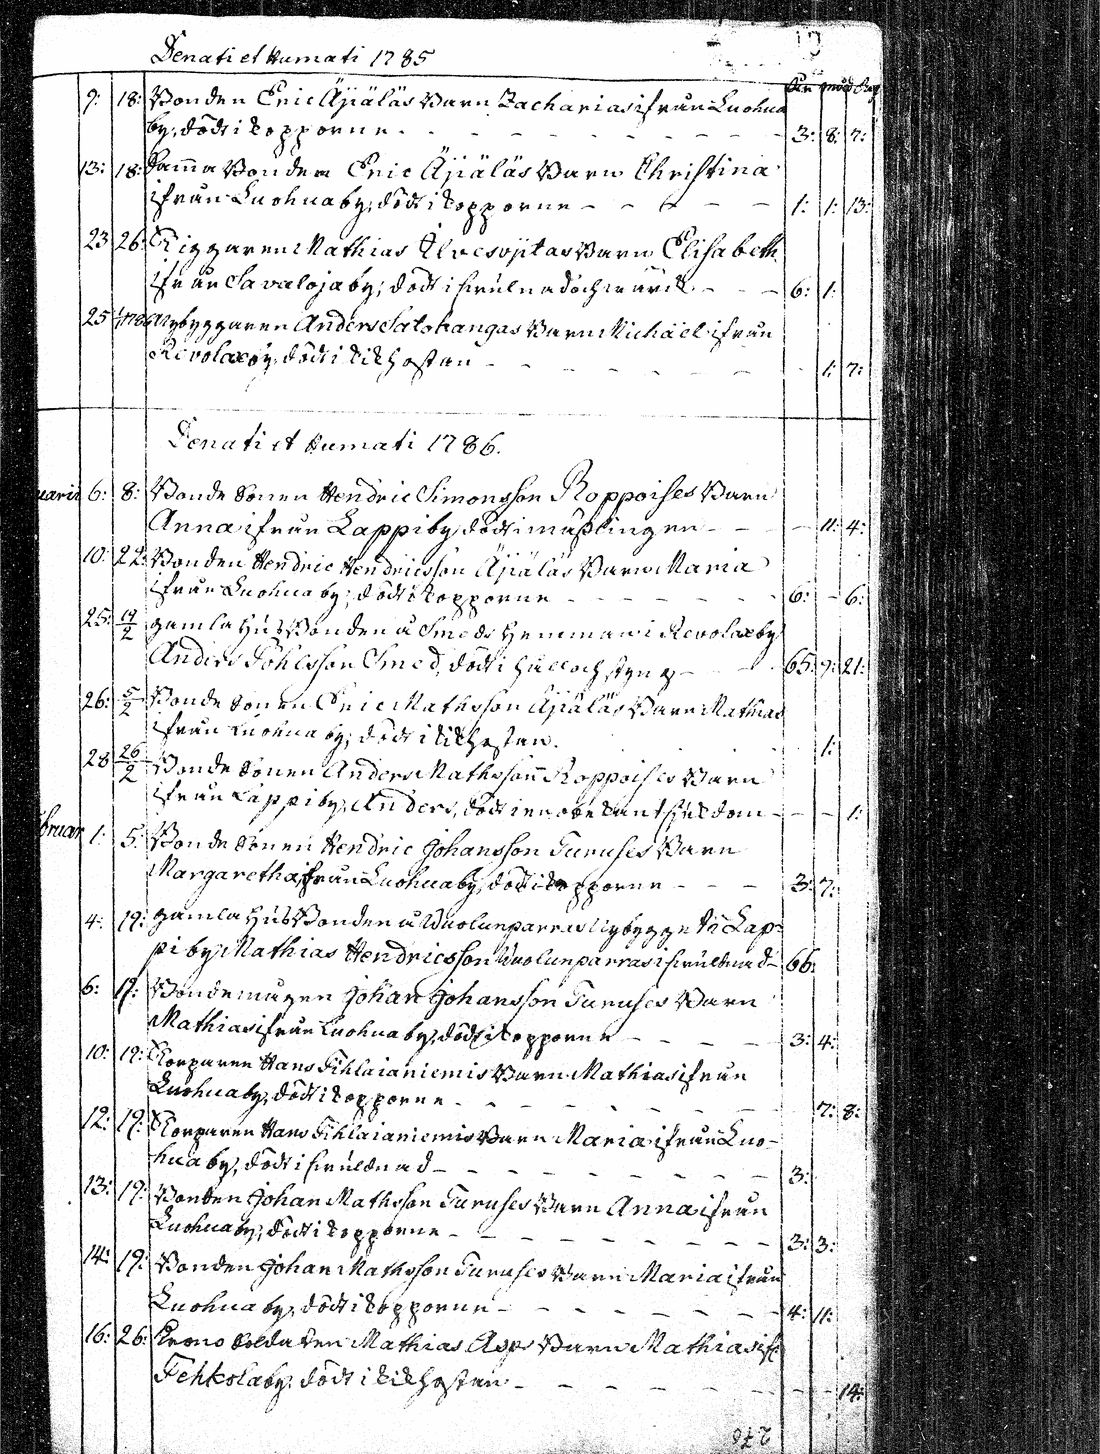 Denati et humati 1785
åhr månd dag
9: 18: Bonden Eric Äijäläs Barn Zacharias ifrån Luohua
by, död i kopporne - - - 3: 8: 7:
13: 18: Samma Bonden Eric Äijäläs Barn Christina
ifrån Luohua by, död i kopporne - - - 1: 1: 13:
23 26: Mathias Barn Elisabeth
ifrån Savaloja by; död i - - 6: 1:
25 Nybyggaren Anders Satokangas Barn Michäel ifrån
Revolax by, död i kikhostan - - - 1: 7:
Denati et humati 1786.
uarii 6: 8: Bonde Sonen Hendric Simonsson Roppoises Barn
Anna ifrån Lappi by, död i mäßlingen - - - 11: 4:
10: 22: Bonden Hendric Hendricsson Äijäläs Barn Maria
ifrån Luohua by; död i kopporne - - - 6: - 6:
25: 19/2 gamla Husbonden å Smeds Hemman i Revolax by
Anders Påhlsson Smed, död i håll och styng - - 65: 9: 21:
26: 5/2 Bonde Sonen Eric Mathsson Äijäläs Barn Mathias
ifrån Luohua by; död i kikhostan. 1:
28 26/2 Bonde Sonen Anders Mathsson Roppoises Barn
ifrån Lappi by, Anders, död i en obekant siukdom - - - 1:
bruar 1: 5: Bonde Sonen Hendric Johansson Turuses Barn
Margaretha, ifrån Luohua by, död i kopporne - - - 3: 7:
4: 19: gamla Husbonden å Vuolunparras Nybygge i Lap-
pi by Mathias Hendricsson Vuolunparras i - 66:
6: 19: Bondemågen Johan Johansson Turuses Barn
Mathias ifrån Luohua by, död i kopporne - - - 3: 4:
10: 19: Hans Tihlaianiemis Barn Mathias ifrån
Luohua by, död i kopporne - - - 7: 8:
12: 19: Hans Tihlaianiemis Barn Maria ifrån Luo-
hua by, död i - - - 3:
13: 19: Bonden Johan Mathsson Turuses Barn Anna ifrån
Luohua by; död i kopporne - - - 3: 3:
14: 19: Bonden Johan Mathsson Turuses Barn Maria ifrån
Luohua by, död i kopporne - - - 4: 11:
16: 26: Krono Soldaten Mathias Asps Barn Mathias if:
by, död i kikhostan - - - 14: